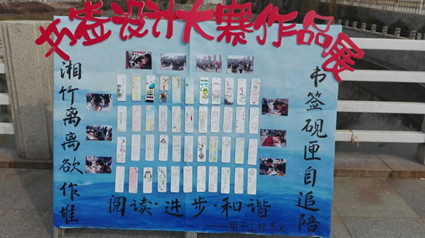 书签设计大赛作品展
湘竹离离欲作堆
书签砚匣自追陪
阅读·进步·和谐